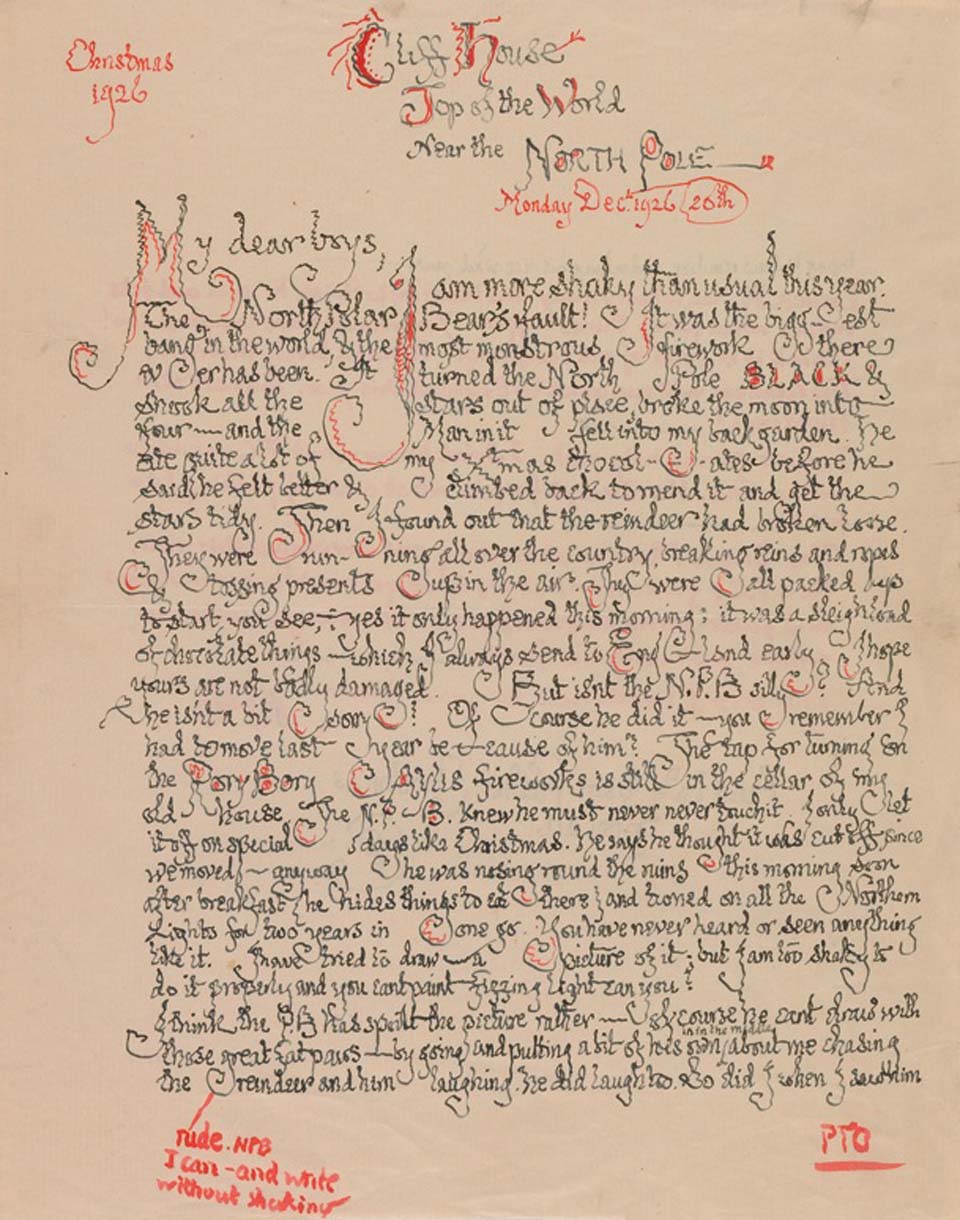 Christmas
1926
Cliff House
Top of the World
Near the NORTH POLE
Monday Dec. 1926 20th
My dear boys,
I am more shaky than usual this year.
The North Polar Bear's fault! It was the bigg-est
bang in the world, & the most monstrous firework there
ever has been. It turned the North Pole BLACK &
shook all the stars out of place, broke the moon into
four — and the Man in it fell into my back garden. He
ate quite a lot of my Xmas chocol-ates before he
said he felt better & climbed back to mend it and get the
stars tidy. Then I found out that the reindeer had broken loose.
They were run-ning all over the country, breaking reins and ropes
& tossing presents up in the air. They were all packed up
to start, you see, — yes it only happened this morning: it was a sleighload
of chocolate things — which I always send to England early. I hope
yours are not badly damaged. But isn't the N.P.B silly? And
he isn't a bit sorry! Of course he did it — you remember I
had to move last year because of him? The tap for turning on
the Rory Bory Aylis fireworks is still in the cellar of my
old house. The N.P.B. knew he must never never touch it. I only let
it off on special days like Christmas. He says he thought it was cut off since
we moved — anyway he was nosing round the ruins this morning soon
after breakfast (he hides things to eat there) and turned on all the Northern
Lights for two years in one go. You have never heard or seen anything
like it. I have tried to draw a picture of it; but I am too shaky to
do it properly and you cant paint fizzing light can you?
I think the PB has spoilt the picture rather — of course he cant draw with
those great fat paws — by going and putting a bit of his own in the middle about me chasing
the reindeer and him laughing. He did laugh too. So did I when I saw him
rude. NPB
I can - and write
without shaking
PTO